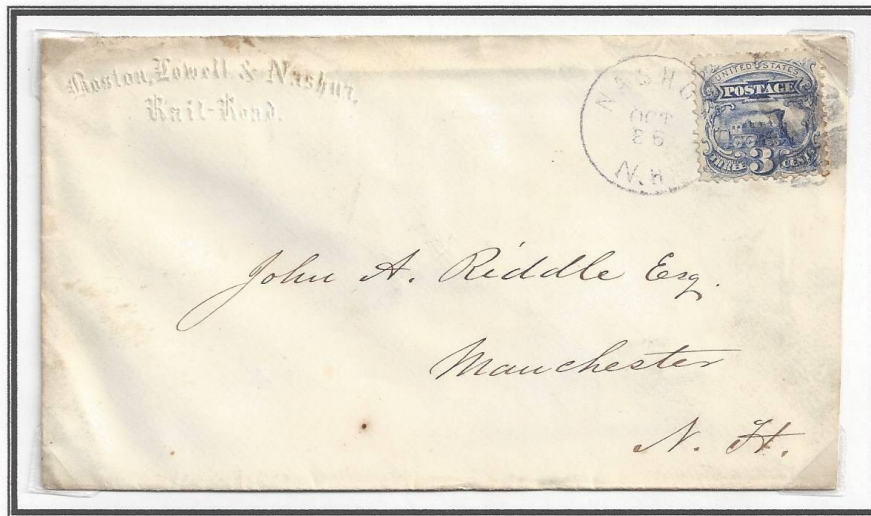 Boston, Lowell & Nashua,
Rail-Road.
NASHU
OCT
N.H.
UNITED STATES
POSTAGE
THREE 3 CENTS
John A. Riddle Esq.
Manchester
N. H.